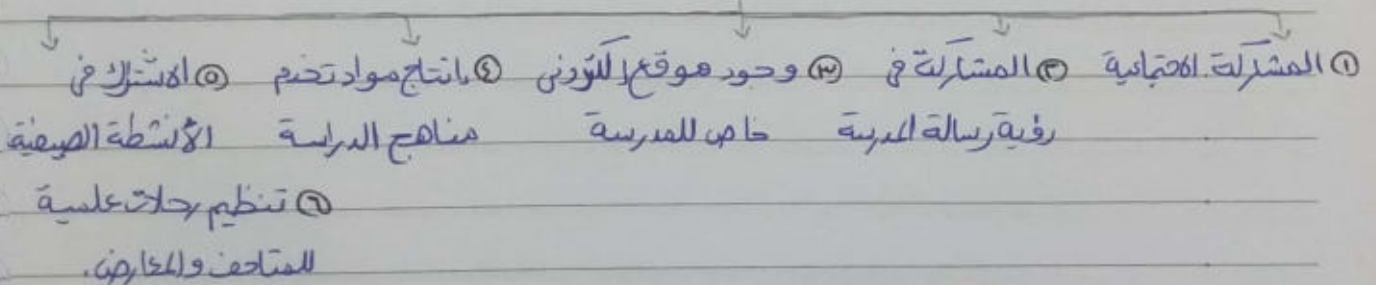 ① المشاركة الاجتماعية ② المشاركة في ③ وجود موقع إلكتروني ④ إنتاج مواد تخدم ⑤ الاشتراك في
رؤية رسالة المدرسة خاص للمدرسة مناهج الدراسة الأنشطة الصيفية
⑥ تنظيم رحلات علمية
للمتاحف والمعارض.